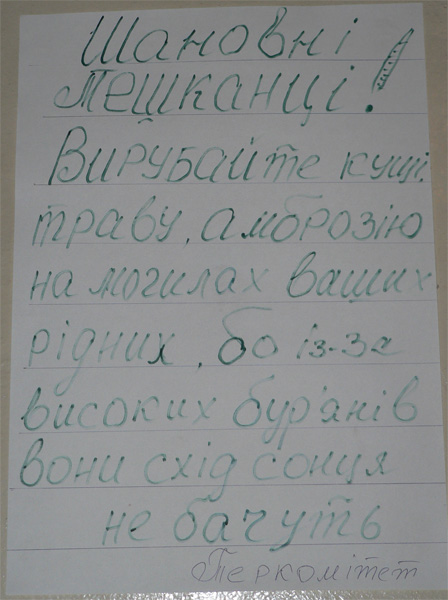 Шановні
мешканці!
Вирубайте кущі,
траву, амброзію
на могилах ваших
рідних, бо із-за
високих бур'янів
вони схід сонця
не бачуть
Теркомітет